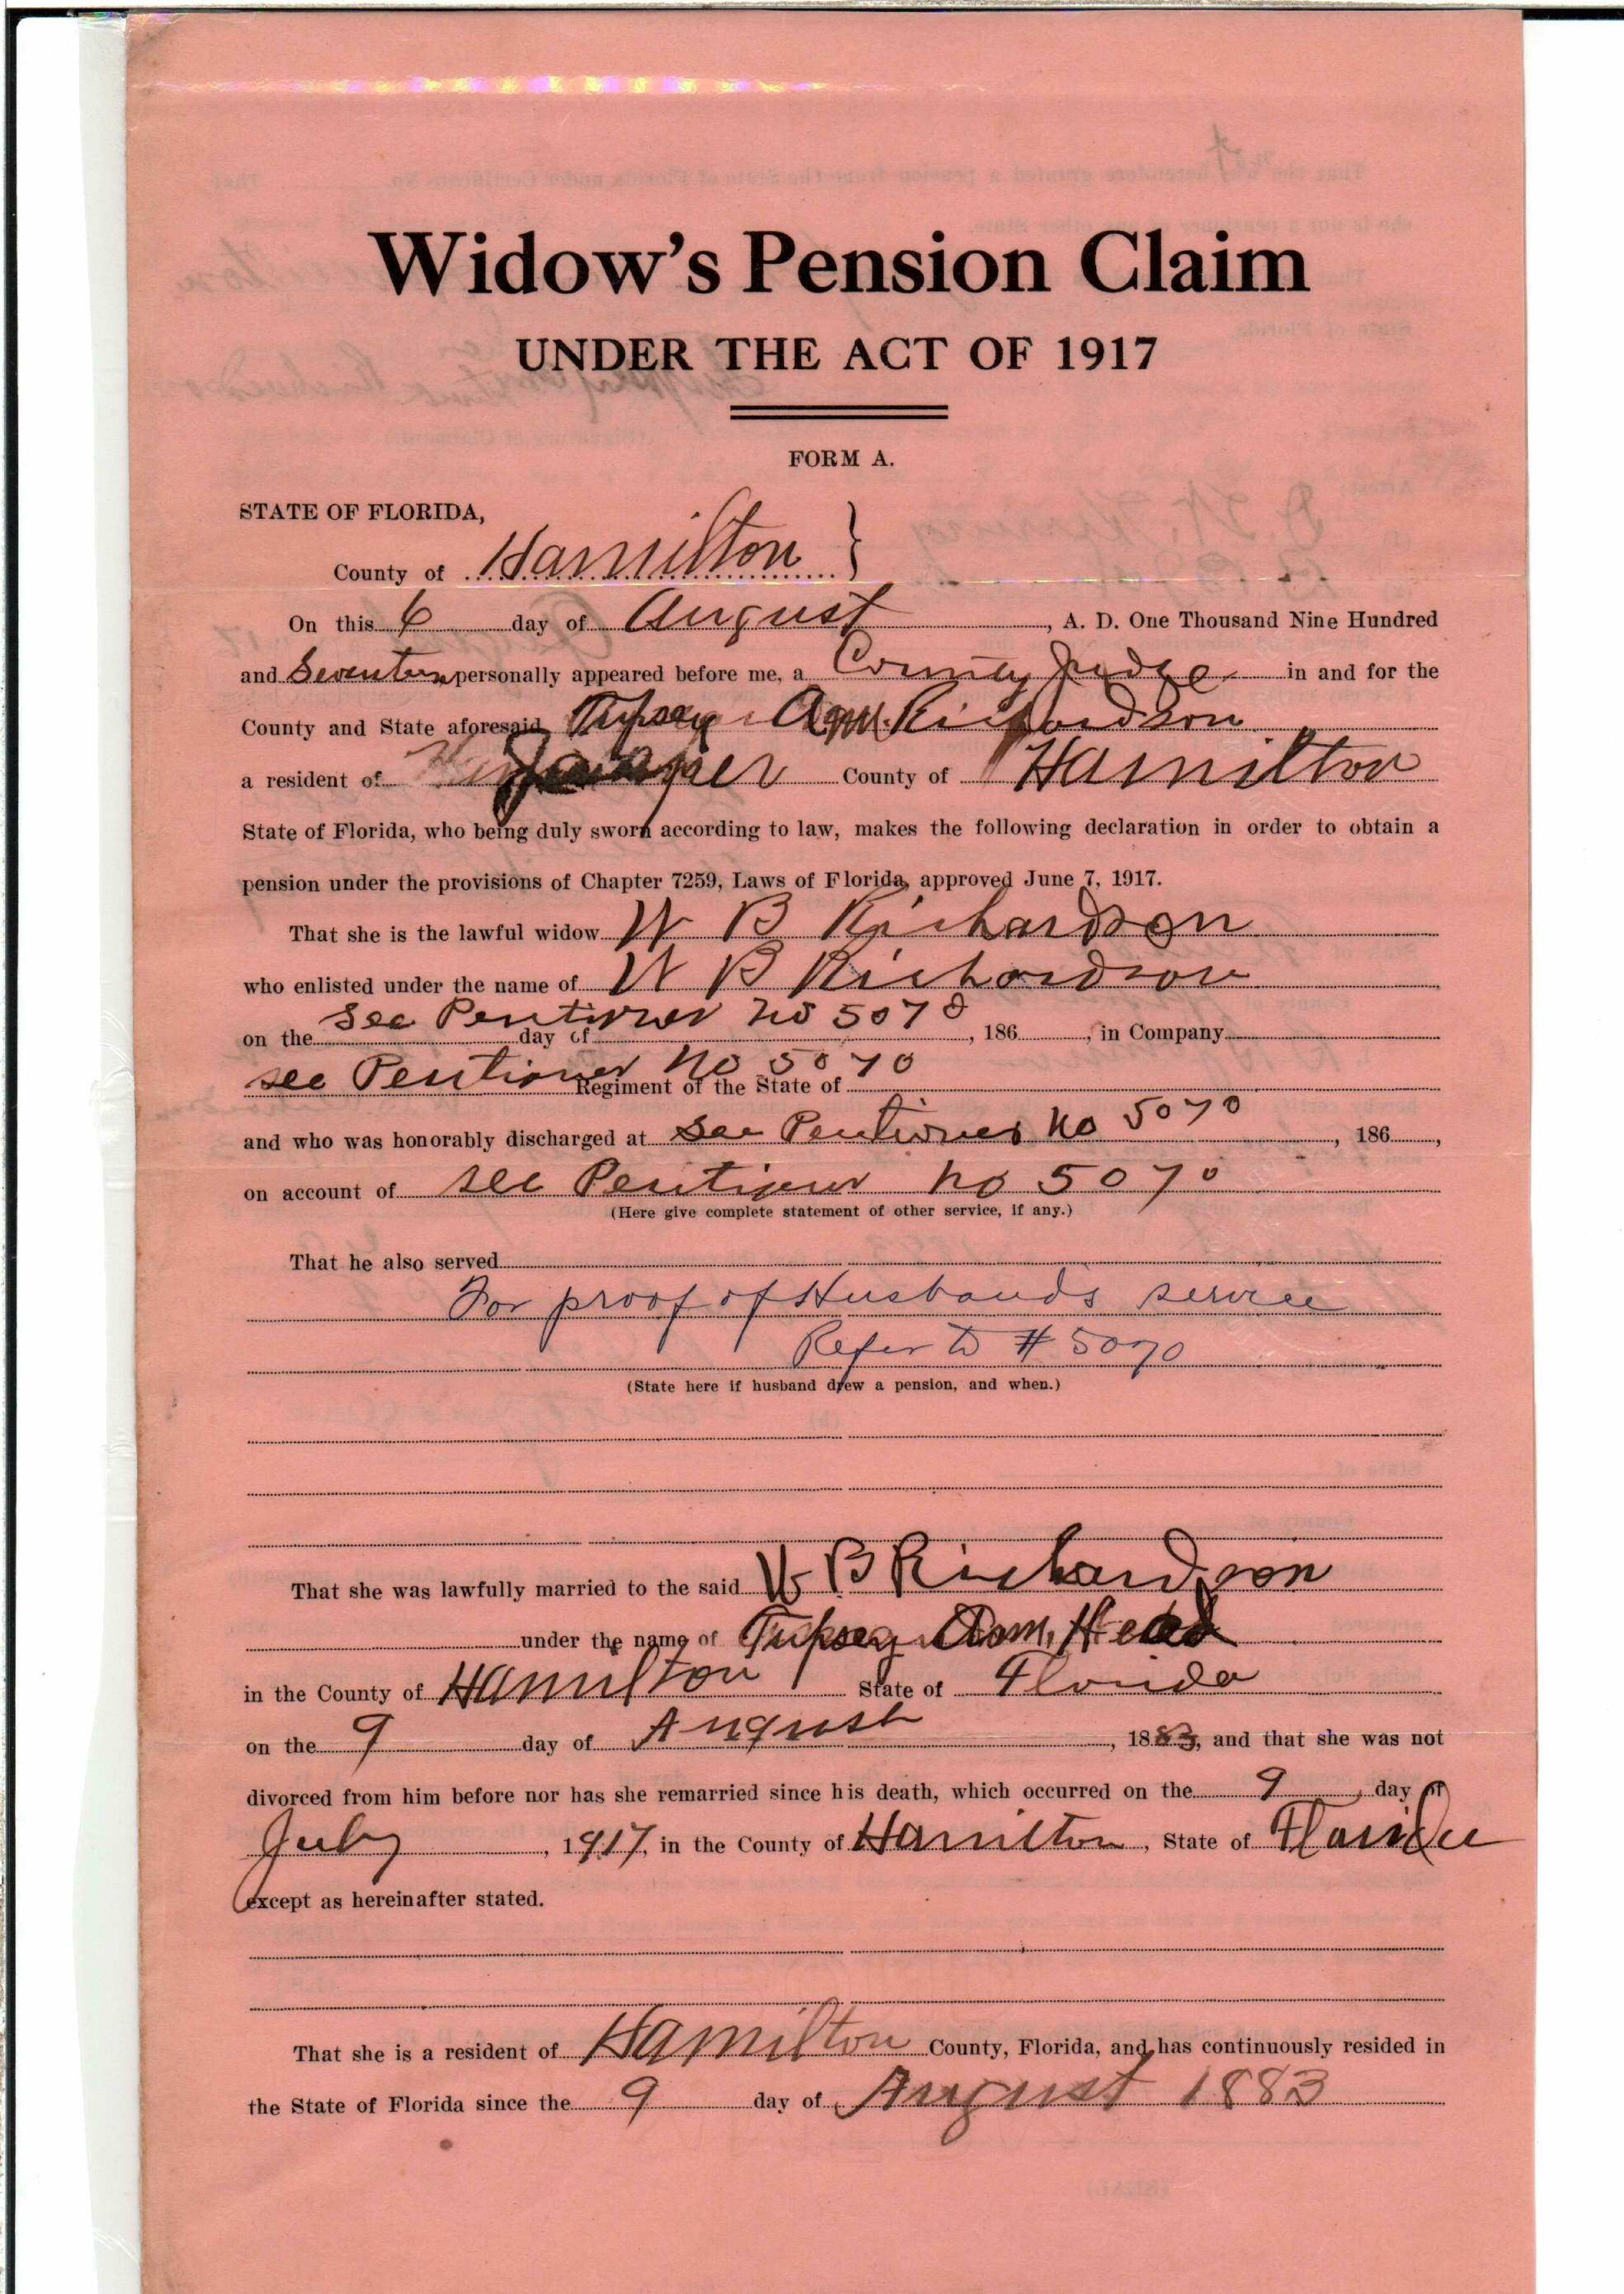 Widow's Pension Claim
UNDER THE ACT OF 1917
FORM A.
STATE OF FLORIDA,
County of Hamilton }
On this 6 day of August, A. D. One Thousand Nine Hundred
and Seventeen personally appeared before me, a County Judge in and for the
County and State aforesaid Tupsey Ann Richardson
a resident of Jasper County of Hamilton
State of Florida, who being duly sworn according to law, makes the following declaration in order to obtain a
pension under the provisions of Chapter 7259, Laws of Florida, approved June 7, 1917.
That she is the lawful widow W B Richardson
who enlisted under the name of W B Richardson
see Pentioner No 5070
on the day of , 186 , in Company
see Pentioner No 5070
Regiment of the State of
and who was honorably discharged at see Pentioner No 5070 , 186 ,
on account of see Pentioner No 5070
(Here give complete statement of other service, if any.)
That he also served
For proof of Husbands service
Refer to # 5070
(State here if husband drew a pension, and when.)
That she was lawfully married to the said W B Richardson
under the name of Tupsey Ann Head
in the County of Hamilton State of Florida
on the 9 day of August , 1883, and that she was not
divorced from him before nor has she remarried since his death, which occurred on the 9 day of
July , 1917, in the County of Hamilton , State of Florida
except as hereinafter stated.
That she is a resident of Hamilton County, Florida, and has continuously resided in
the State of Florida since the 9 day of August 1883